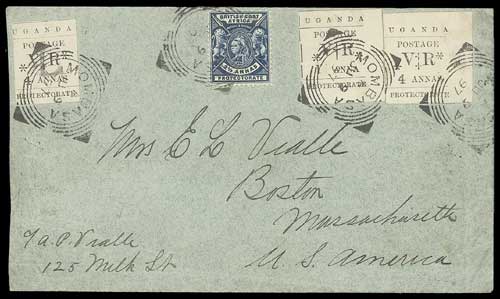 UGANDA
POSTAGE
V R
1 ANNA
PROTECTORATE
MOMBASA
BRITISH EAST
AFRICA
ANNAS
PROTECTORATE
UGANDA
POSTAGE
V R
ANNA
PROTECTORATE
MOMBASA
UGANDA
POSTAGE
V R
4 ANNAS
PROTECTORATE
97
Mrs E L Vialle
Boston
Massachusetts
U. S. America
c/o A. P. Vialle
125 Milk St